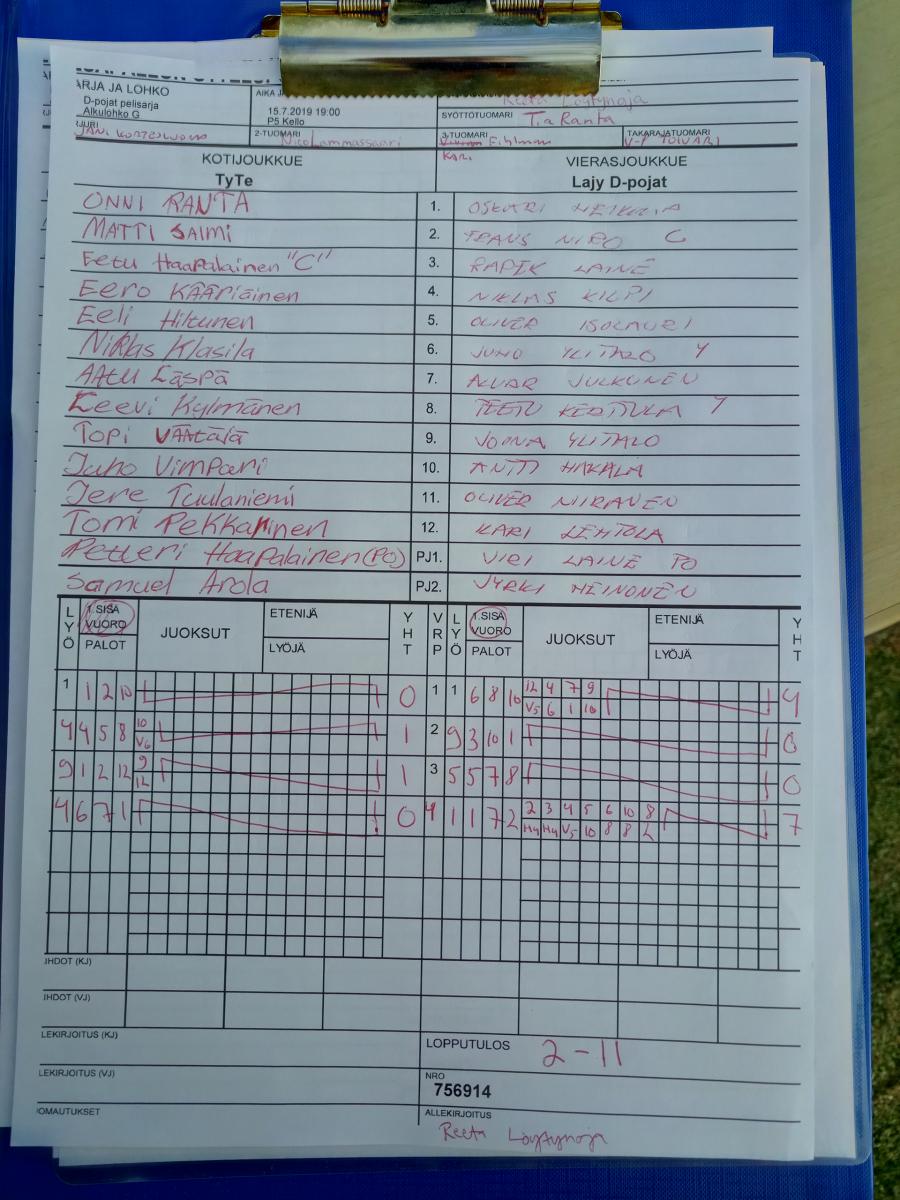 ARJA JA LOHKO
D-pojat pelisarja
Alkulohko G
AIKA
15.7.2019 19:00
P5 Kello
Reeta Löytynoja
SYÖTTÖTUOMARI Tia Ranta
2-TUOMARI
3-TUOMARI
KARI
TAKARAJATUOMARI
KOTIJOUKKUE VIERASJOUKKUE
TyTe Lajy D-pojat
ONNI RANTA 1. OSKARI
MATTI SAIMI 2. FRANS NIRO C
Eetu Haapalainen "C" 3. LAINE
Eero Kääriäinen 4. NIKLAS KILPI
Eeli Hiltunen 5. OLIVER ISOLAURI
Niklas Klasila 6. JUHO YLITALO Y
AAtu Läspä 7. ALVAR JULKUNEN
Leevi Kylmänen 8. Y
Topi Väätäjä 9. JOONA YLITALO
Juho Vimpari 10. ANTTI HAKALA
Jere Tuulaniemi 11. OLIVER NIIRANEN
Tomi Pekkarinen 12. KARI LEHTOLA
Petteri Haapalainen (PO) PJ1. LAINE PO
Samuel Arola PJ2. JYRKI HEINONEN
LYÖ 1.SISÄ VUORO PALOT JUOKSUT ETENIJÄ LYÖJÄ YHT VRP LYÖ 1.SISÄ VUORO PALOT JUOKSUT ETENIJÄ LYÖJÄ YHT
1 1 2 10 0 1 1 6 8 10 12 4 7 9 4
V5 6 1 10
4 4 5 8 10 1 2 9 3 10 1 0
V6
9 1 2 12 9 1 3 5 5 7 8 0
12
4 6 7 1 0 4 1 1 7 2 2 3 4 5 6 10 8 7
H4 H4 V5 10 8 8 L
IHDOT (KJ)
IHDOT (VJ)
LEKIRJOITUS (KJ)
LOPPUTULOS 2-11
LEKIRJOITUS (VJ)
NRO
756914
OMAUTUKSET
ALLEKIRJOITUS
Reeta Löytynoja